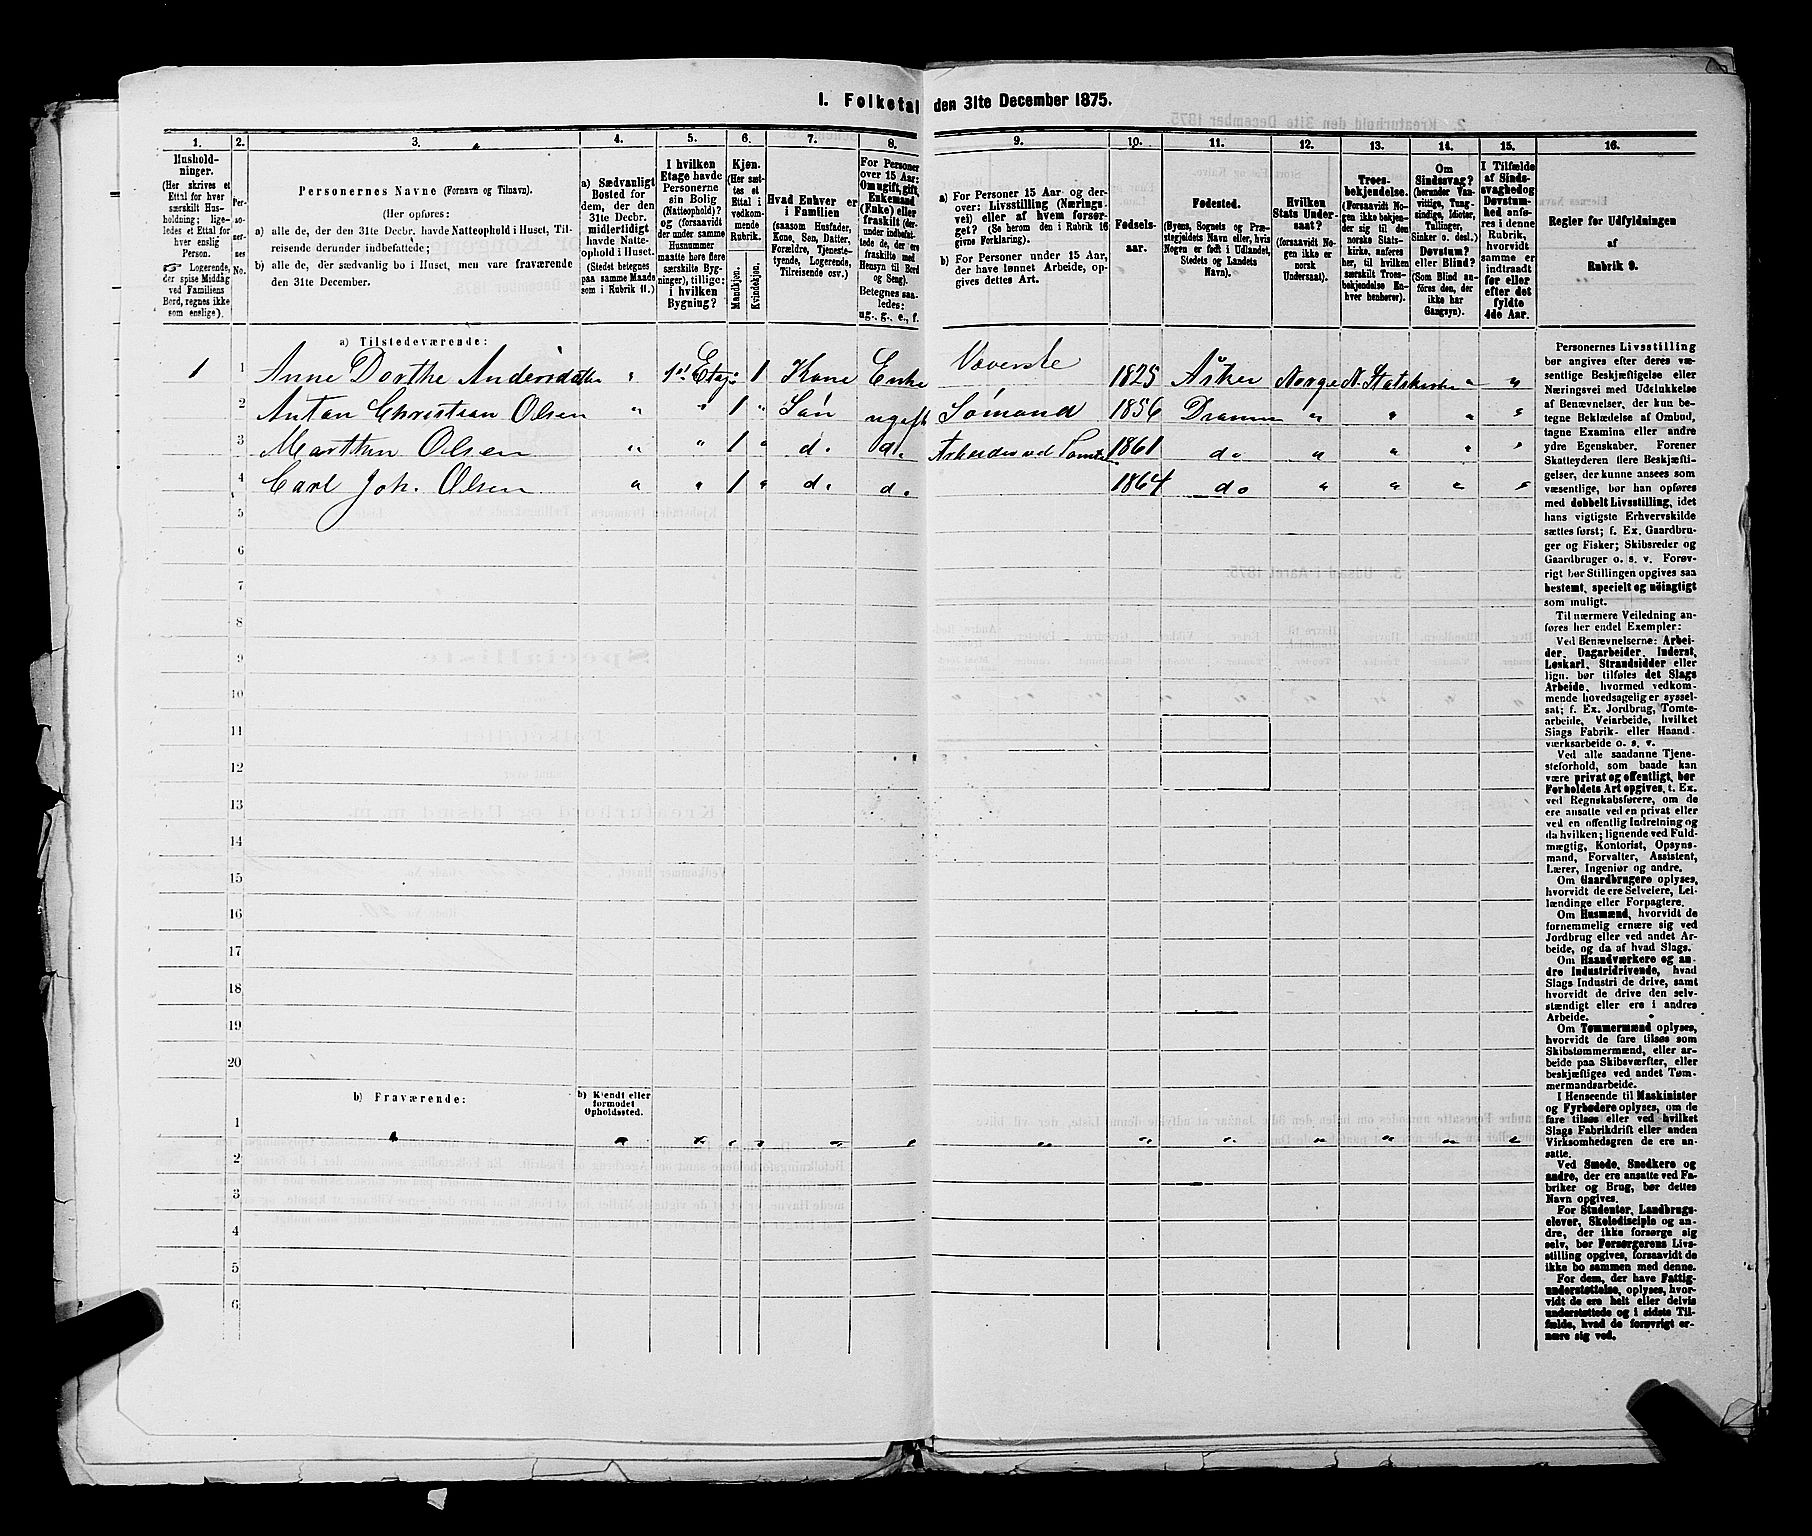 I. Folketal den 31te December 1875.
1. 2. 3. 4. 5. 6. 7. 8. 9. 10. 11. 12. 13. 14. 15. 16.
Husholdninger.
(Her skrives et
Ettal for hver
særskilt Husholdning; ligeledes
et Ettal for
hver enslig
Person.
Logerende,
der spise Middag
ved Familiens
Bord, regnes ikke
som enslige).
Personernes No.
Personernes Navne (Fornavn og Tilnavn).
(Her opføres:
a) alle de, der den 31te Decbr. havde Natteophold i Huset, Tilreisende
derunder indbefattede;
b) alle de, der sædvanlig bo i Huset, men vare fraværende
den 31te December.
a) Sædvanligt
Bosted for
dem, der den
31te Decbr.
midlertidigt
havde Natteophold
i Huset.
(Stedet betegnes
paa samme Maade
som i Rubrik 11.)
I hvilken
Etage havde
Personerne
sin Bolig
(Natteophold)?
og (forsaavidt
der under samme
Husnummer
maatte høre flere
særskilte Bygninger),
tillige:
i hvilken
Bygning?
Kjøn.
(Her sættes
et
Ettal i
vedkommende
Rubrik.
Mandkjøn.
Kvindekjøn.
Hvad Enhver er
i Familien
(saasom Husfader,
Kone, Søn, Datter,
Forældre, Tjenestetyende,
Logerende,
Tilreisende osv.)
For Personer
over 15 Aar:
Om ugift, gift,
Enkemand
(Enke) eller
fraskilt (derunder
indbefattede
de, der ere
fraskilte med
Hensyn til Bord
og Seng).
Betegnes saaledes:
ug., g., e., f.
a) For Personer 15 Aar og derover:
Livsstilling (Næringsvei)
eller af hvem forsørget?
(Se herom den i Rubrik 16
givne Forklaring).
b) For Personer under 15 Aar,
der have lønnet Arbeide, opgives
dettes Art.
Fødselsaar.
Fødested.
(Byens, Sognets og Præstegjeldets
Navn eller, hvis
Nogen er født i Udlandet,
Stedets og Landets
Navn).
Hvilken
Stats Undersaat?
(forsaavidt Nogen
ikke er
norsk
Undersaat).
Troesbekjendelse.
(Forsaavidt Nogen
ikke bekjender
sig til den
norske Statskirke,
anføres
her, til hvilken
særskilt Troesbekjendelse
Enhver
henhører).
Om
Sindssvag?
(herunder Vanvittige,
Tungsindige,
Idioter,
Tullinger,
Sinker o. desl.)
Døvstum?
eller Blind?
(Som Blind anføres
den, der
ikke har
Gangsyn).
I Tilfælde
af Sindssvaghed
og
Døvstumhed
anføres
i denne
Rubrik,
hvorvidt
samme er
indtraadt
før eller
efter det
fyldte
4de Aar.
Regler for Udfyldningen
af
Rubrik 9.
a) Tilstedeværende:
1 1 Anne Dorthe Andersdatter " 1st Etage 1 Kone Enke Væverske 1825 Asker Norge N. Statskirke " "
2 Anton Christian Olsen " " 1 " Søn ugift Sømand 1856 Drammen " " " "
3 Marthin Olsen " " 1 " do do Arbeider ved Tomten 1861 do " " " "
4 Carl Joh. Olsen " " 1 " do do 1864 do " " " "
5
6
7
8
9
10
11
12
13
14
15
16
17
18
19
20
b) Fraværende:
b) Kjendt eller
formodet
Opholdssted.
1 " " " " " " " " " " " " " "
2
3
4
5
6
Personernes Livsstilling
bør angives efter deres væsentlige
Beskjæftigelse eller
Næringsvei med Udelukkelse
af Benævnelser, der kun betegne
Beklædelse af Ombud,
tagne Examina eller andre
ydre Egenskaber. Forener
Skatteyderen flere Beskjæftigelser,
der kunne ansees som
væsentlige, bør han opføres
med dobbelt Livsstilling, idet
hans vigtigste Erhvervskilde
sættes først; f. Ex. Gaardbruger
og Fisker; Skibsreder og
Gaardbruger o. s. v. Forøvrigt
bør Stillingen opgives saa
bestemt, specielt og nöiagtigt
som muligt.
Til nærmere Veiledning anføres
her endel Exempler:
Ved Benævnelserne: Arbeider,
Dagarbeider, Inderst,
Løskarl, Strandsidder eller
lign. bør tilføies det Slags
Arbeide, hvormed vedkommende
hovedsagelig er sysselsat;
f. Ex. Jordbrug, Tomtearbeide,
Veiarbeide, hvilket
Slags Fabrik- eller Haandværksarbeide
o. s. v.
Ved alle saadanne Tjenesteforhold,
som baade kan
være privat og offentligt, bør
Forholdets Art opgives, t. Ex.
ved Regnskabsførere, om de
ere ansatte ved en privat eller
ved en offentlig Indretning og
da hvilken; lignende ved Fuldmægtig,
Kontorist, Opsynsmand,
Forvalter, Assistent,
Lærer, Ingeniør og andre.
Om Gaardbrugere oplyses,
hvorvidt de ere Selveiere, Leilændinge
eller Forpagtere.
Om Husmænd, hvorvidt de
fornemmelig ernære sig ved
Jordbrug eller ved andet Arbeide,
og da af hvad Slags.
Om Haandværkere og andre
Industridrivende, hvad
Slags Industri de drive, samt
hvorvidt de drive den selvstændigt
eller ere i andres
Arbeide.
Om Tømmermænd oplyses,
hvorvidt de fare tilsøs som
Skibstømmermænd, eller arbeide
paa Skibsværfter, eller
beskjæftiges ved andet Tømmermandsarbeide.
I Henseende til Maskinister
og Fyrbødere oplyses, om de
fare tilsøs eller ved hvilket
Slags Fabrikdrift eller anden
Virksomhedsgren de ere ansatte.
Ved Smede, Snedkere og
andre, der ere ansatte ved Fabriker
og Brug, bør dettes
Navn opgives.
For Studenter, Landbrugselever,
Skoledisciple og andre,
der ikke forsørge sig
selv, bør Forsørgerens Livsstilling
opgives, forsaavidt de
ikke bo sammen med denne.
For dem, der have Fattigunderstøttelse,
oplyses, hvorvidt
de ere helt eller delvis
understøttede og i sidste Tilfælde,
hvad de forøvrigt ernære
sig ved.